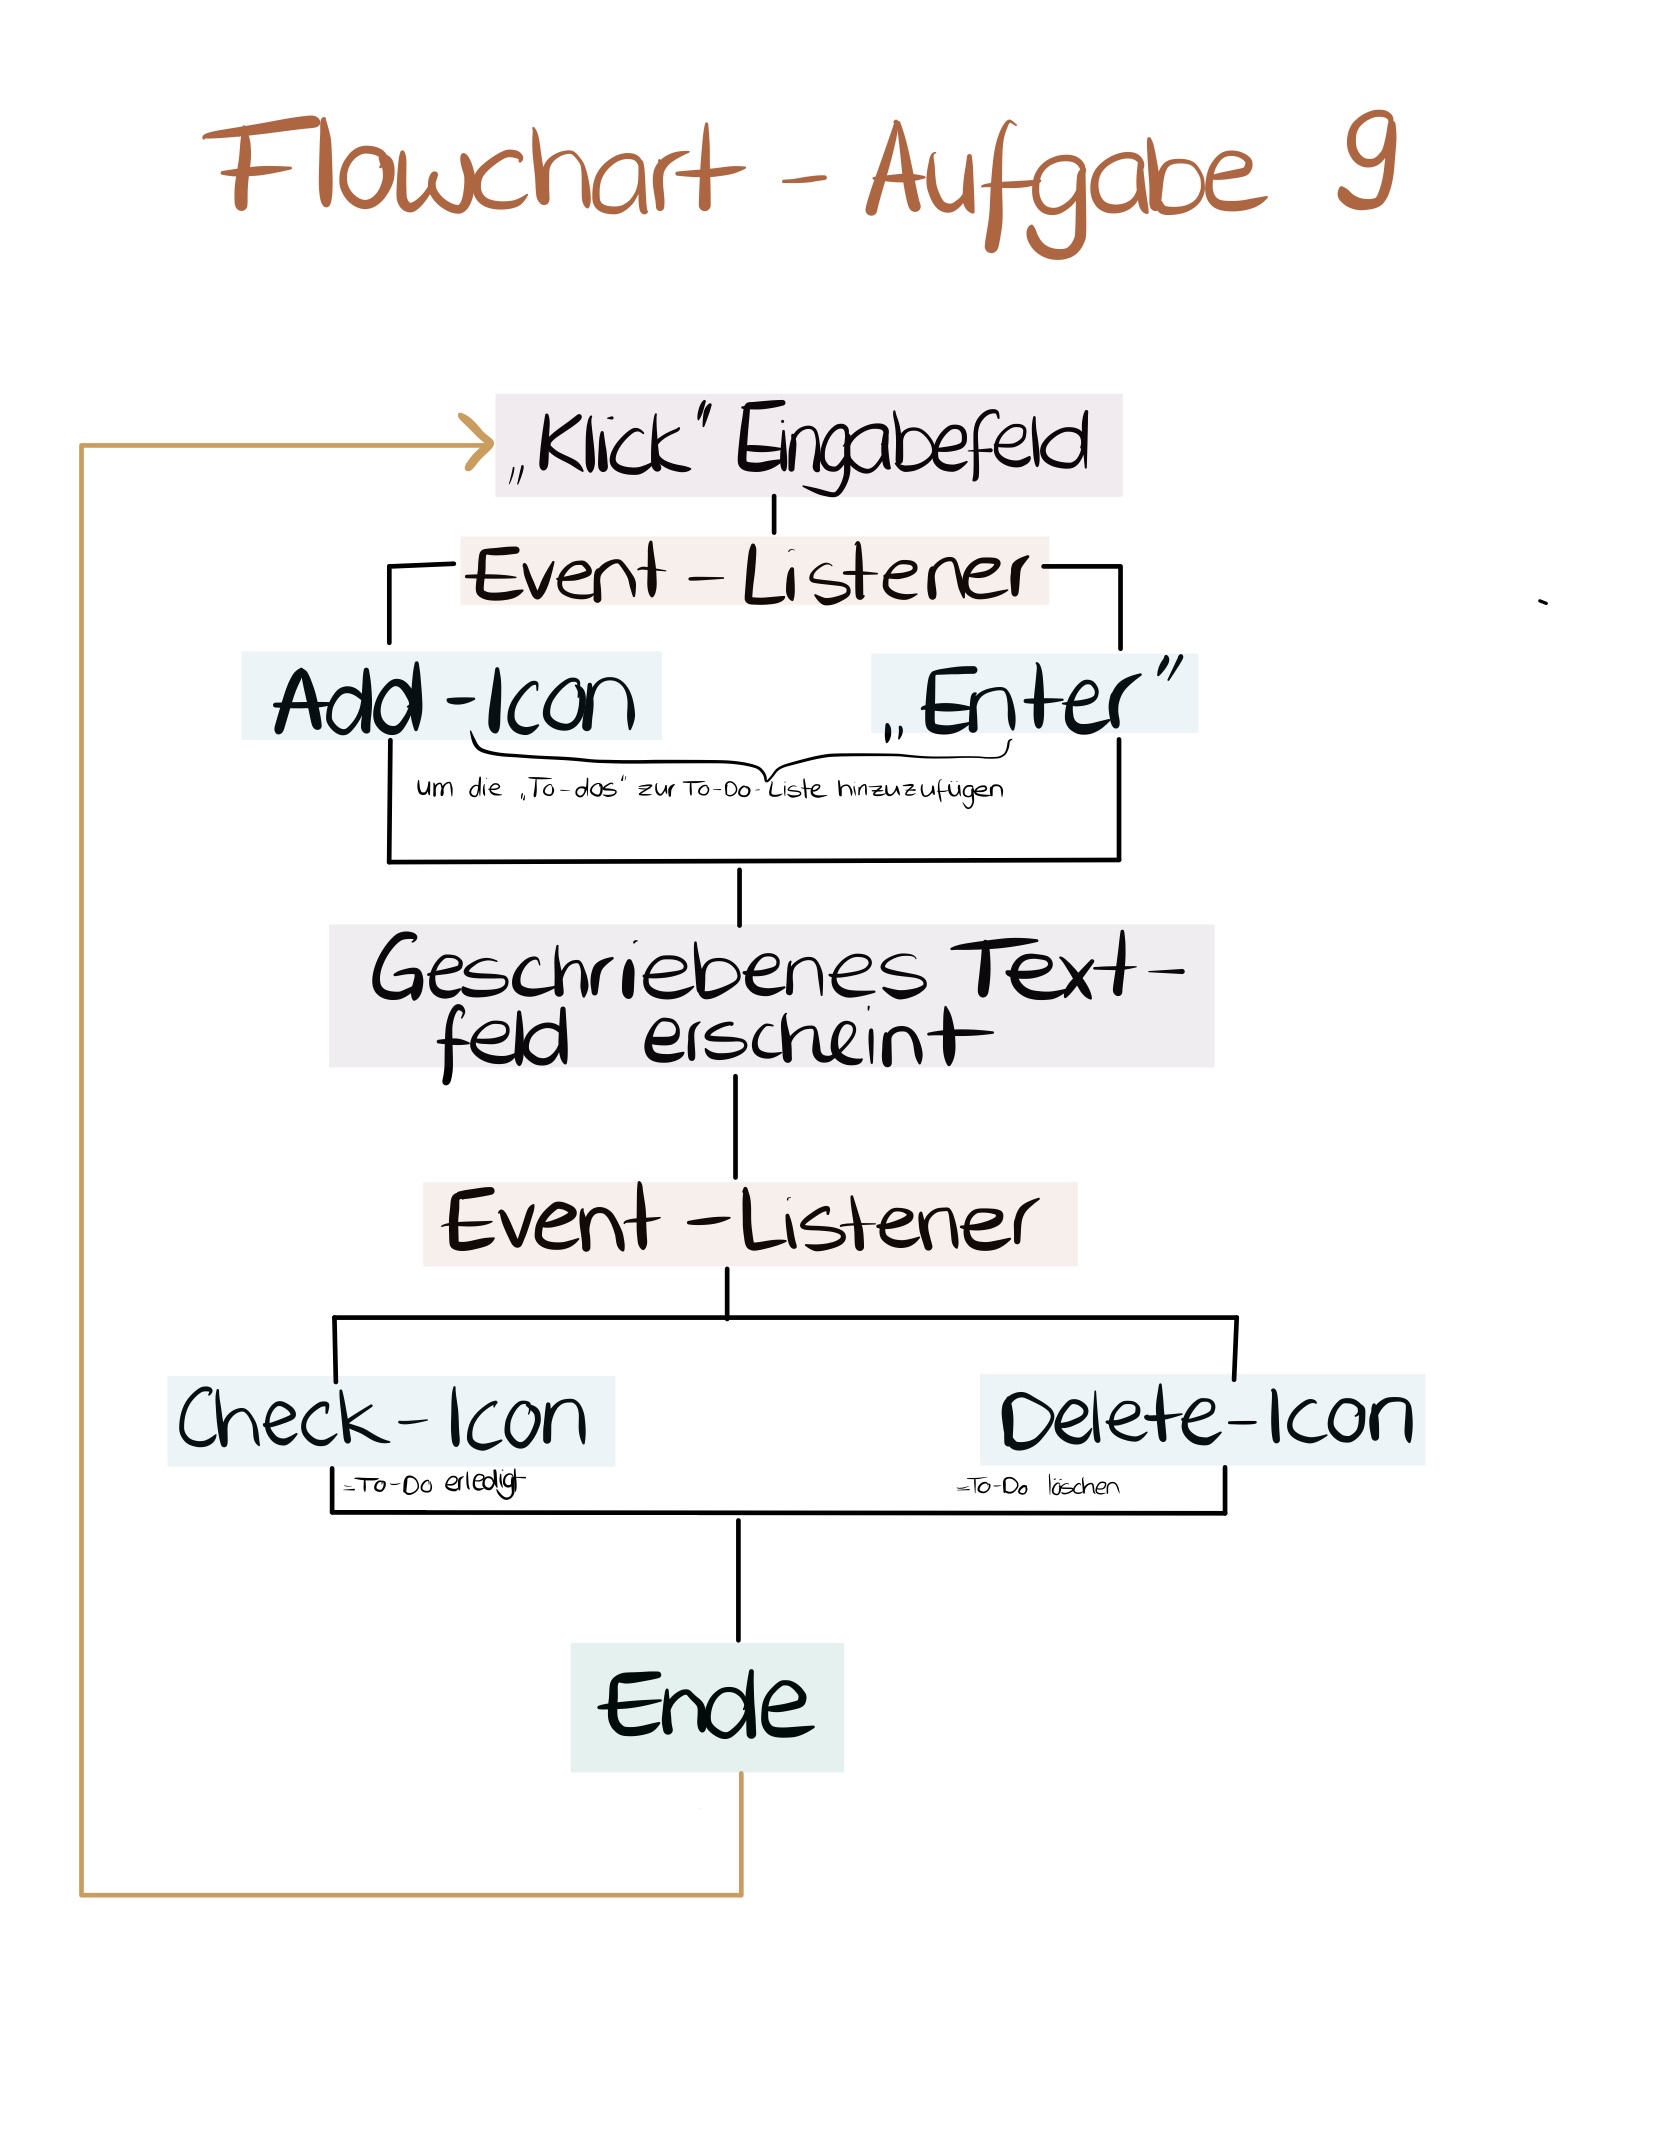 Flowchart - Aufgabe 9
„Klick" Eingabefeld
Event - Listener
Add - Icon
„Enter"
um die „To-dos" zur To-Do-Liste hinzuzufügen
Geschriebenes Text-
feld erscheint
Event - Listener
Check-Icon
Delete-Icon
=To-Do erledigt
=To-Do löschen
Ende